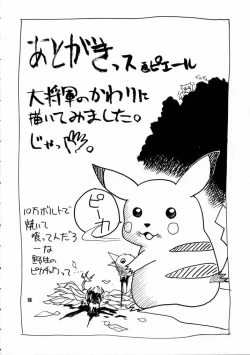 あとがきっス
ピエール
大将軍のかわりに
描いてみました。
じゃっ
ピーカ
10万ボルトで
焼いて
喰ってんだろ
ーな
野生の
ピカチュウって…
56